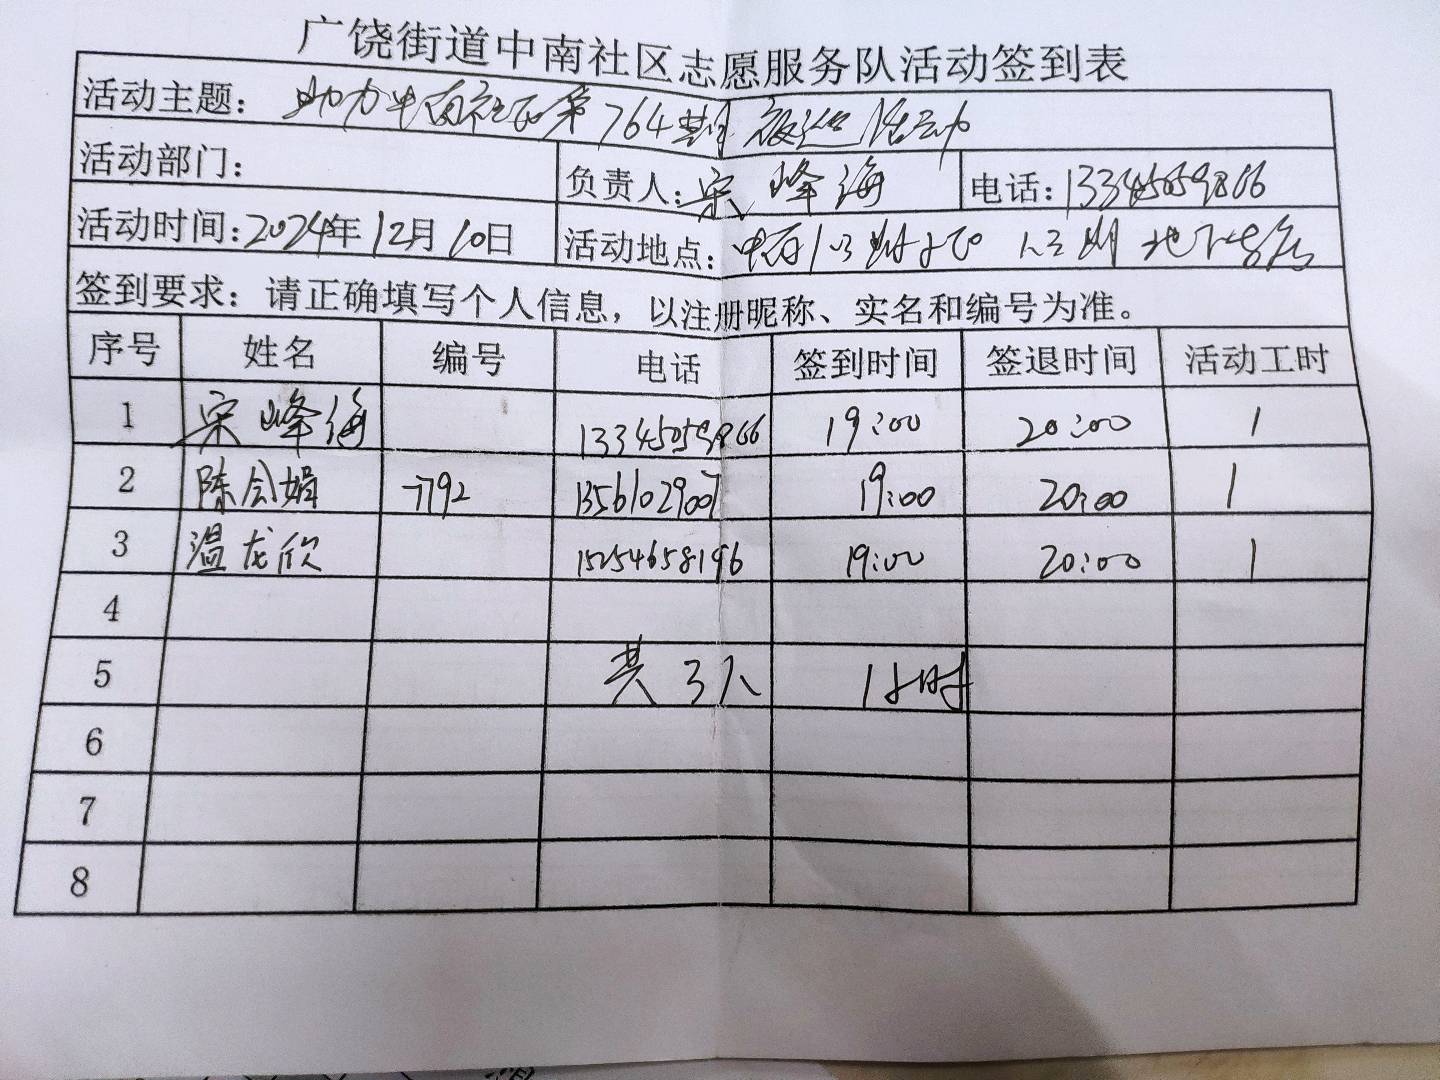 广饶街道中南社区志愿服务队活动签到表
活动主题: 助力中南社区第764期夜巡活动
活动部门:
负责人: 宋峰海 电话: 13345059866
活动时间: 2024年12月10日 活动地点: 中南 期 期地下
签到要求: 请正确填写个人信息，以注册昵称、实名和编号为准。
序号 姓名 编号 电话 签到时间 签退时间 活动工时
1 宋峰海 13345059866 19:00 20:00 1
2 陈会娟 7792 13561029007 19:00 20:00 1
3 温龙欣 15254658196 19:00 20:00 1
4
5 共3人 1小时
6
7
8